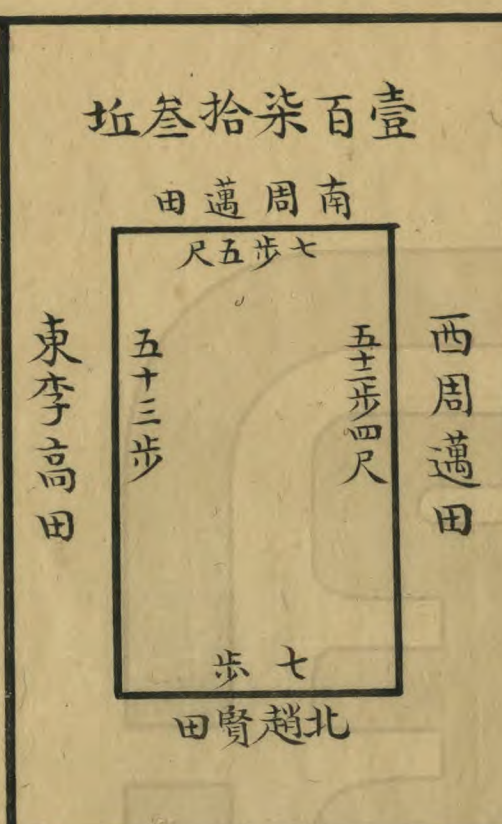 壹百柒拾叁坵
南周邁田
七步五尺
西周邁田
五十二步四尺
五十三步
東李高田
七步
北趙賢田